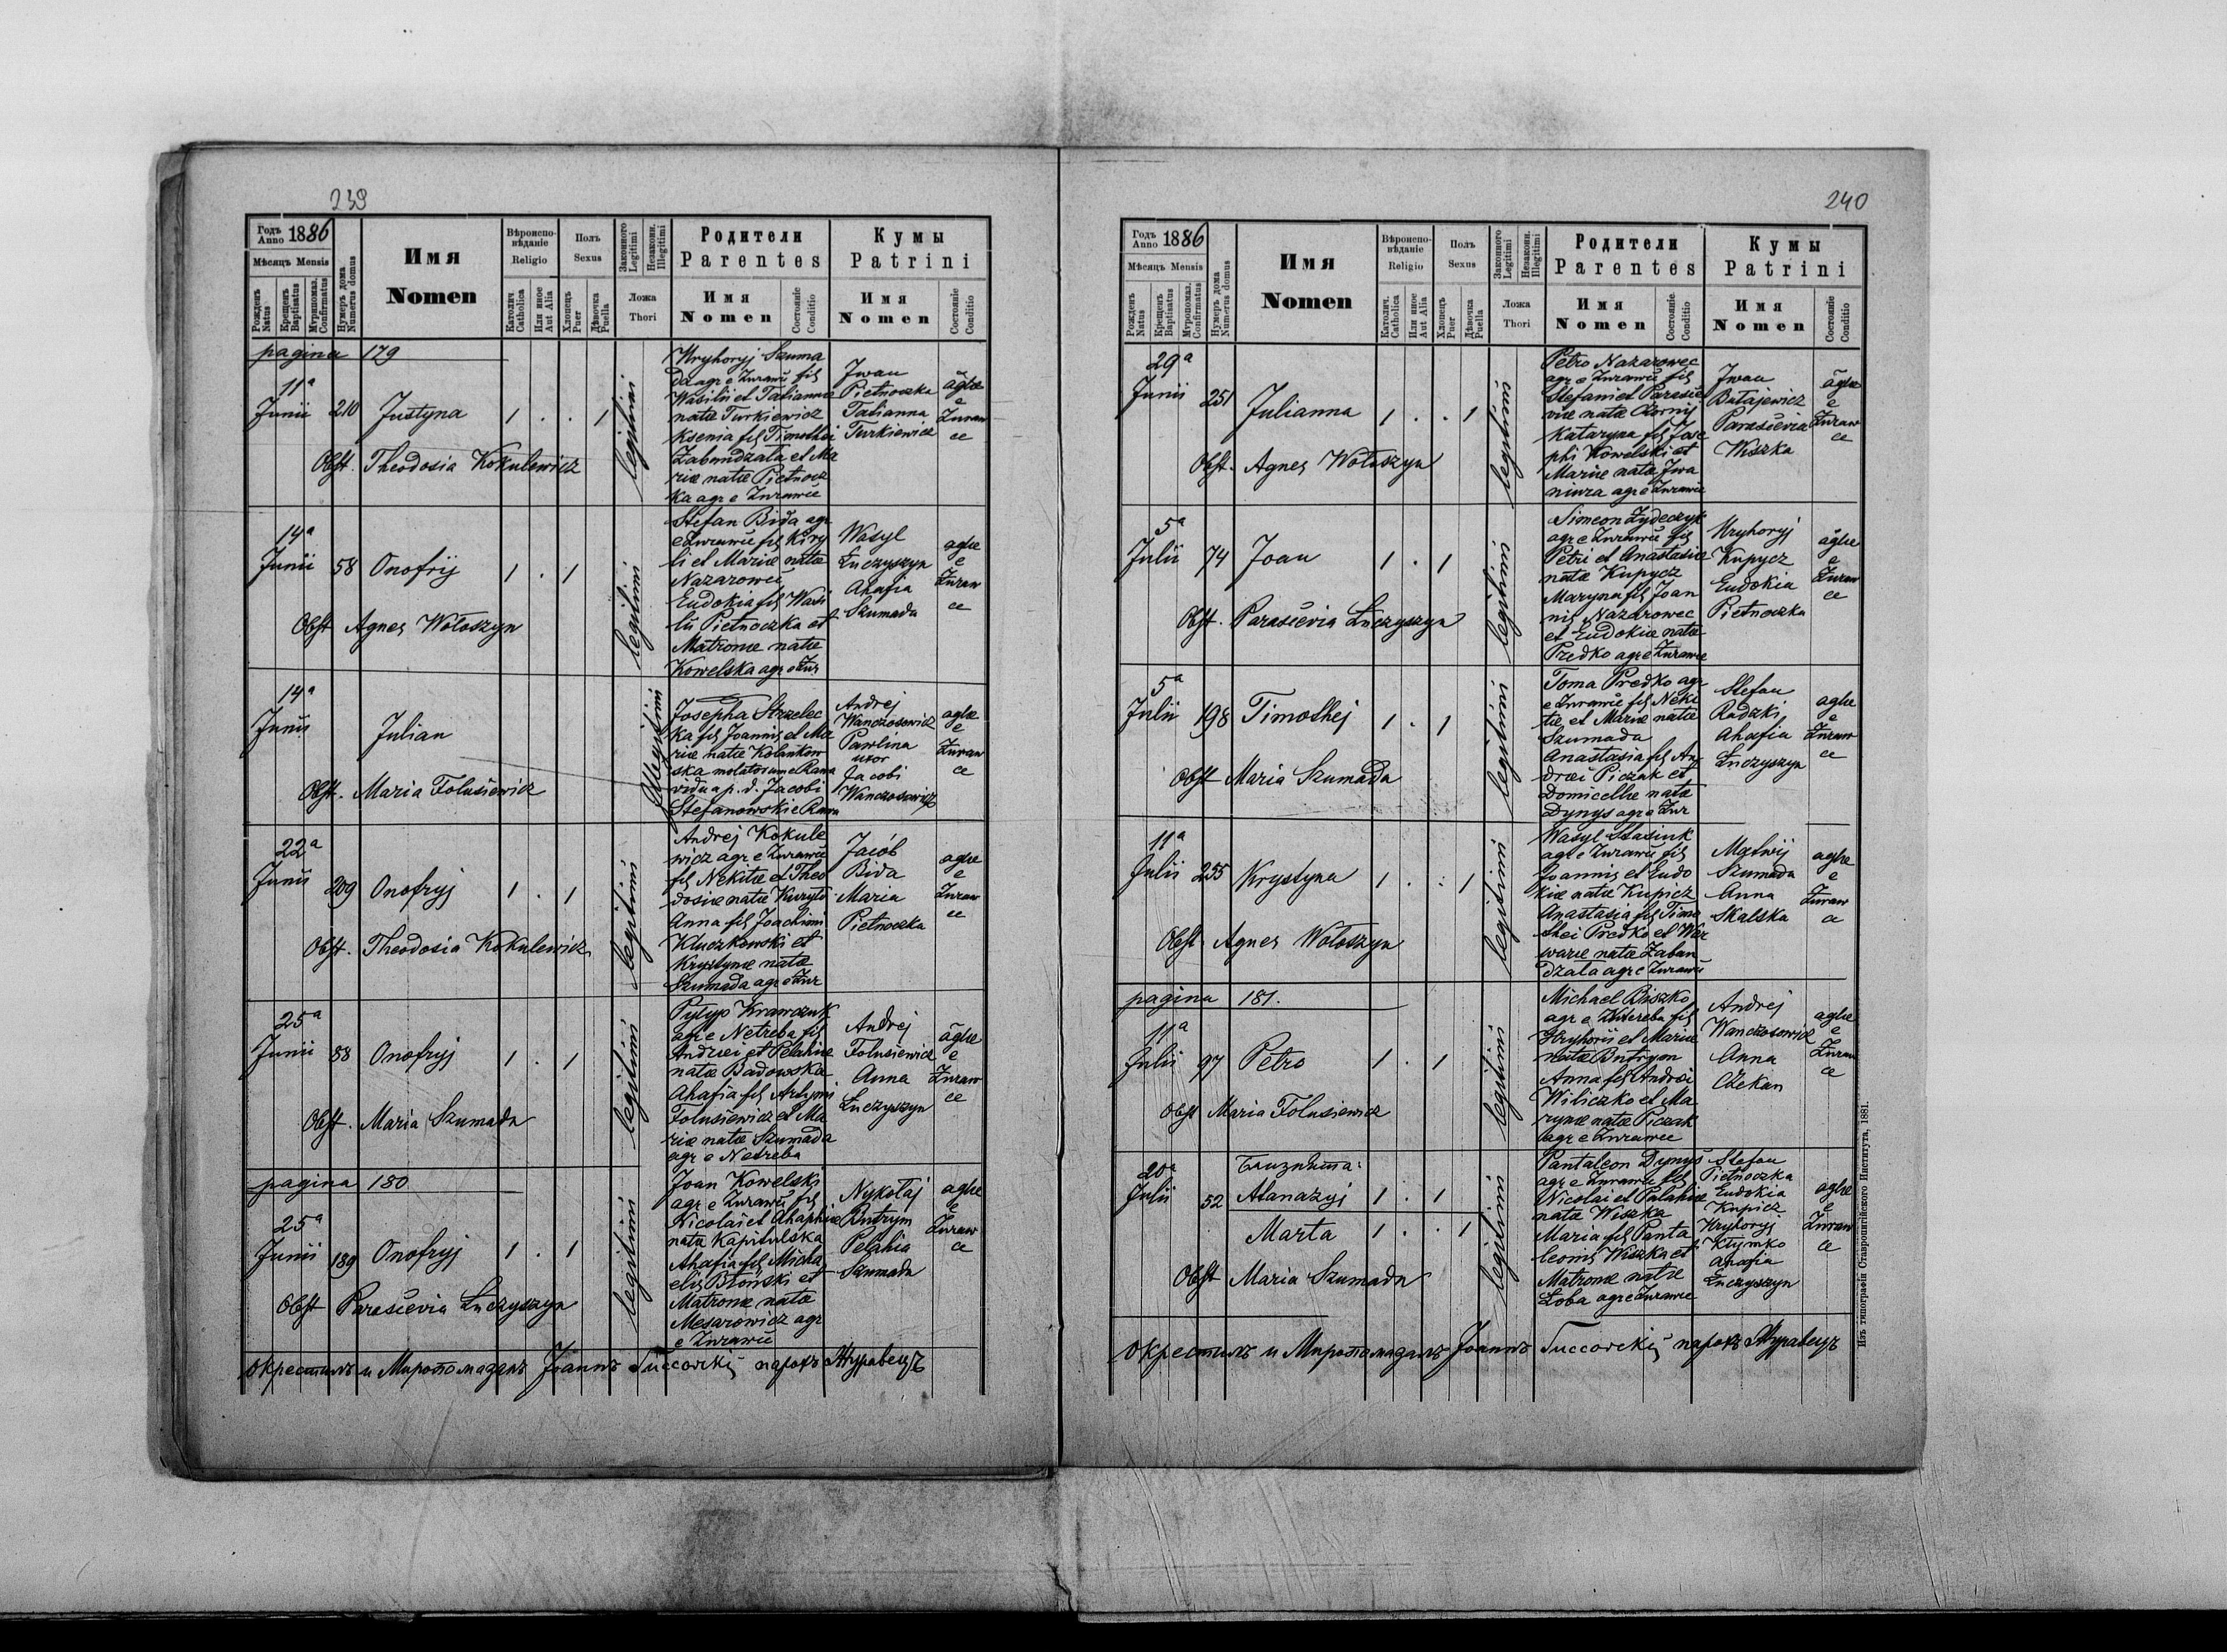 239
Годъ Anno 1886
Мѣсяцъ Mensis
Рожденъ Natus
Крещенъ Baptisatus
Муропомаз. Confirmatus
Нумеръ дома Numerus domus
Имя Nomen
Вѣроиспо-вѣданіе Religio
Католич Catholica
Или иное Aut Alia
Полъ Sexus
Хлопець Puer
Дѣвочка Puella
Законного Legitimi
Незаконн. Illegitimi
Ложа Thori
Родители Parentes
Имя Nomen
Состояніе Conditio
Кумы Patrini
Имя Nomen
Состояніе Conditio
pagina 179
11ª Junii 210 Justyna 1 . . 1 legitimi
Obst. Theodosia Kokulewicz
Hryhoryj Szuma
da agr e Żurawci fil
Wasilii et Tatianna
natæ Turkiewicz
Ksenia fil Timothei
Zabandzała et Ma
riæ natæ Pietnocz
ka agr e Żurawce
Iwan
Pietnoczka
Tatianna
Turkiewicz
aglæ
e
Żuraw
ce
14ª Junii 58 Onofrij 1 . 1 legitimi
Obst Agnes Wołoszyn
Stefan Bida agr
e Żurawce fil Kiry
li et Mariæ natæ
Nazarowec
Eudokia fil Wasi
lii Pietnoczka et
Matronæ natæ
Kowelska agr e Żur
Wasyl
Łuczyszyn
Ahafia
Szumada
aglæ
e
Żuraw
ce
14ª Junii Julian Illegitimi
Obst. Maria Folusiewicz
Josepha Strzelec
ka fil Joannis et Ma
riæ natæ Kolankow
ska molatorum e Rawa
vidua p. d. Jacobi
Stefanowski e Rawa
Andrej
Wanczosowicz
Pawlina
uxor
Jacobi
Wanczosowicz
aglæ
e
Żuraw
ce
22ª Junii 209 Onofryj 1 . 1 legitimi
Obst. Theodosia Kokulewicz
Andrej Kokule
wicz agr e Żurawce
fil Nekitæ et Theo
dosiæ natæ Kuryło
Anna fil Joachimi
Kluczkowski et
Krystynæ natæ
Szumada agr e Żur
Jacób
Bida
Maria
Pietnoczka
aglæ
e
Żuraw
ce
25ª Junii 88 Onofryj 1 . 1 legitimi
Obst. Maria Szumada
Pyłyp Krawczuk
agr e Netreba fil
Andrei et Pelahiæ
natæ Badowska
Ahafia fil Artymi
Folusiewicz et Ma
riæ natæ Szumada
agr e Netreba
Andrej
Folusiewicz
Anna
Łuczyszyn
aglæ
e
Żuraw
ce
pagina 180
25ª Junii 189 Onofryj 1 . 1 legitimi
Obst Parascevia Łuczyszyn
Joan Kowelski
agr e Żurawce fil
Nicolai et Ahaphiæ
natæ Kapitulska
Ahafia fil Micha
elis Błoński et
Matronæ natæ
Mesarowicz agr
e Żurawce
Nykołaj
Butrym
Pelahia
Szumada
aglæ
e
Żuraw
ce
окрестилъ и Миропомазалъ Joannъ Tuссовскій парохъ Журавецъ
240
Годъ Anno 1886
Мѣсяцъ Mensis
Рожденъ Natus
Крещенъ Baptisatus
Муропомаз. Confirmatus
Нумеръ дома Numerus domus
Имя Nomen
Вѣроиспо-вѣданіе Religio
Католич. Catholica
Или иное Aut Alia
Полъ Sexus
Хлопець Puer
Дѣвочка Puella
Законного Legitimi
Незаконн. Illegitimi
Ложа Thori
Родители Parentes
Имя Nomen
Состояніе Conditio
Кумы Patrini
Имя Nomen
Состояніе Conditio
29ª Junii 251 Julianna 1 . . 1 legitimi
Obst. Agnes Wołoszyn
Petro Nazarowec
agr e Żurawce fil
Stefani et Parasce
viæ natæ Czornij
Kataryna fil Jose
phi Kowelski et
Mariæ natæ Iwa
niura agr e Żurawce
Iwan
Batajewicz
Parascevia
Wiszka
aglæ
e
Żuraw
ce
5ª Julii 74 Joan 1 . 1 legitimi
Obst. Parascevia Łuczyszyn
Simeon Żydeczyk
agr e Żurawce fil
Petri et Anastasiæ
natæ Kupycz
Maryna fil Joan
nis Nazarowec
et Eudokiæ natæ
Predko agr e Żurawce
Hryhoryj
Kupycz
Eudokia
Pietnoczka
aglæ
e
Żuraw
ce
5ª Julii 198 Timothej 1 . 1 legitimi
Obst Maria Szumada
Toma Predko agr
e Żurawce fil Neki
tæ et Mariæ natæ
Szumada
Anastasia fil An
drei Piczak et
Domicellæ natæ
Dynys agr e Żur
Stefan
Radzki
Ahafia
Łuczyszyn
aglæ
e
Żuraw
ce
11ª Julii 255 Krystyna 1 . . 1 legitimi
Obst Agnes Wołoszyn
Wasyl Stasiuk
agr e Żurawce fil
Joannis et Eudo
kiæ natæ Kupicz
Anastasia fil Timo
thei Predko et War
waræ natæ Zaban
dzała agr e Żurawce
Matwij
Szumada
Anna
Skalska
aglæ
e
Żuraw
ce
pagina 181.
11ª Julii 97 Petro 1 . 1 legitimi
Obst Maria Folusiewicz
Michael Biszko
agr e Netreba fil
Hryhorii et Mariæ
natæ Butrym
Anna fil Andrei
Wiliczko et Ma
rynæ natæ Piczak
agr e Żurawce
Andrej
Wanczosowicz
Anna
Czekan
aglæ
e
Żuraw
ce
20ª Julii 52 Близнята:
Atanazyj 1 . 1 legitimi
Marta 1 . . 1
Obst Maria Szumada
Pantaleon Dynys
agr e Żurawce fil
Nicolai et Palahiæ
natæ Wiszka
Maria fil Panta
leonis Wiszka et
Matronæ natæ
Łoba agr e Żurawce
Stefan
Pietnoczka
Eudokia
Kupicz
Hryhoryj
Kłymko
Ahafia
Łuczyszyn
aglæ
e
Żuraw
ce
окрестилъ и Миропомазалъ Joannъ Tuссовскій парохъ Журавецъ
Изъ типографіи Ставропигійского Института, 1881.